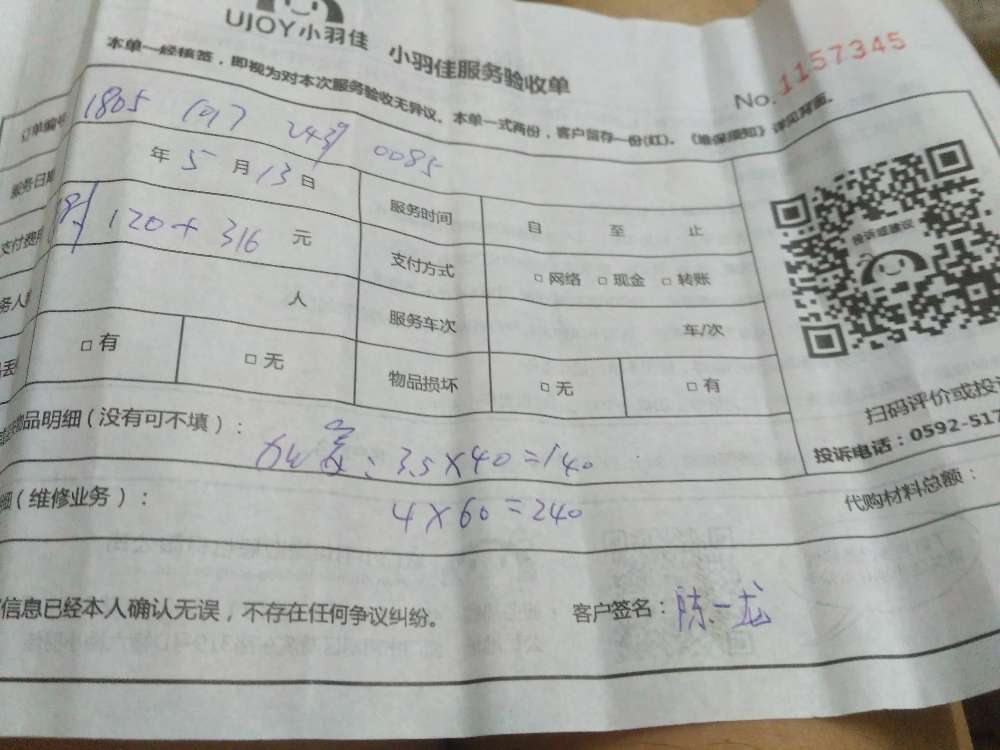 UJOY小羽佳 小羽佳服务验收单
No.1157345
本单一经核签，即视为对本次服务验收无异议。本单一式两份，客户留存一份(红)。《维保须知》详见背面。
订单编 1805 1017 2439 0085
服务日期 年 5 月 13 日 服务时间 自 至 止
支付费用 120+316 元 支付方式 □ 网络 □ 现金 □ 转账
务人 人 服务车次 车/次
□ 有 □ 无 物品损坏 □ 无 □ 有
投诉或建议
扫码评价或投
投诉电话：0592-517
物品明细（没有可不填）：
3.5×40=140
细（维修业务）： 代购材料总额：
4×60=240
信息已经本人确认无误，不存在任何争议纠纷。 客户签名：陈一龙